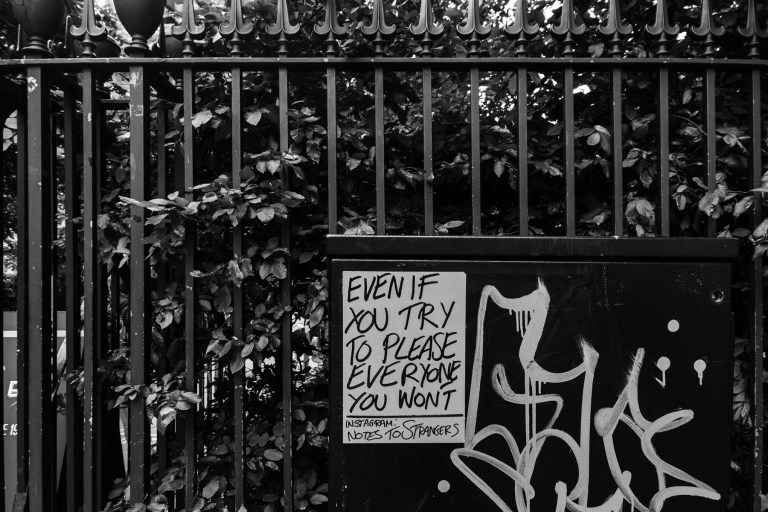 EVEN IF
YOU TRY
TO PLEASE
EVERYONE
YOU WON'T
INSTAGRAM:
NOTES TO STRANGERS